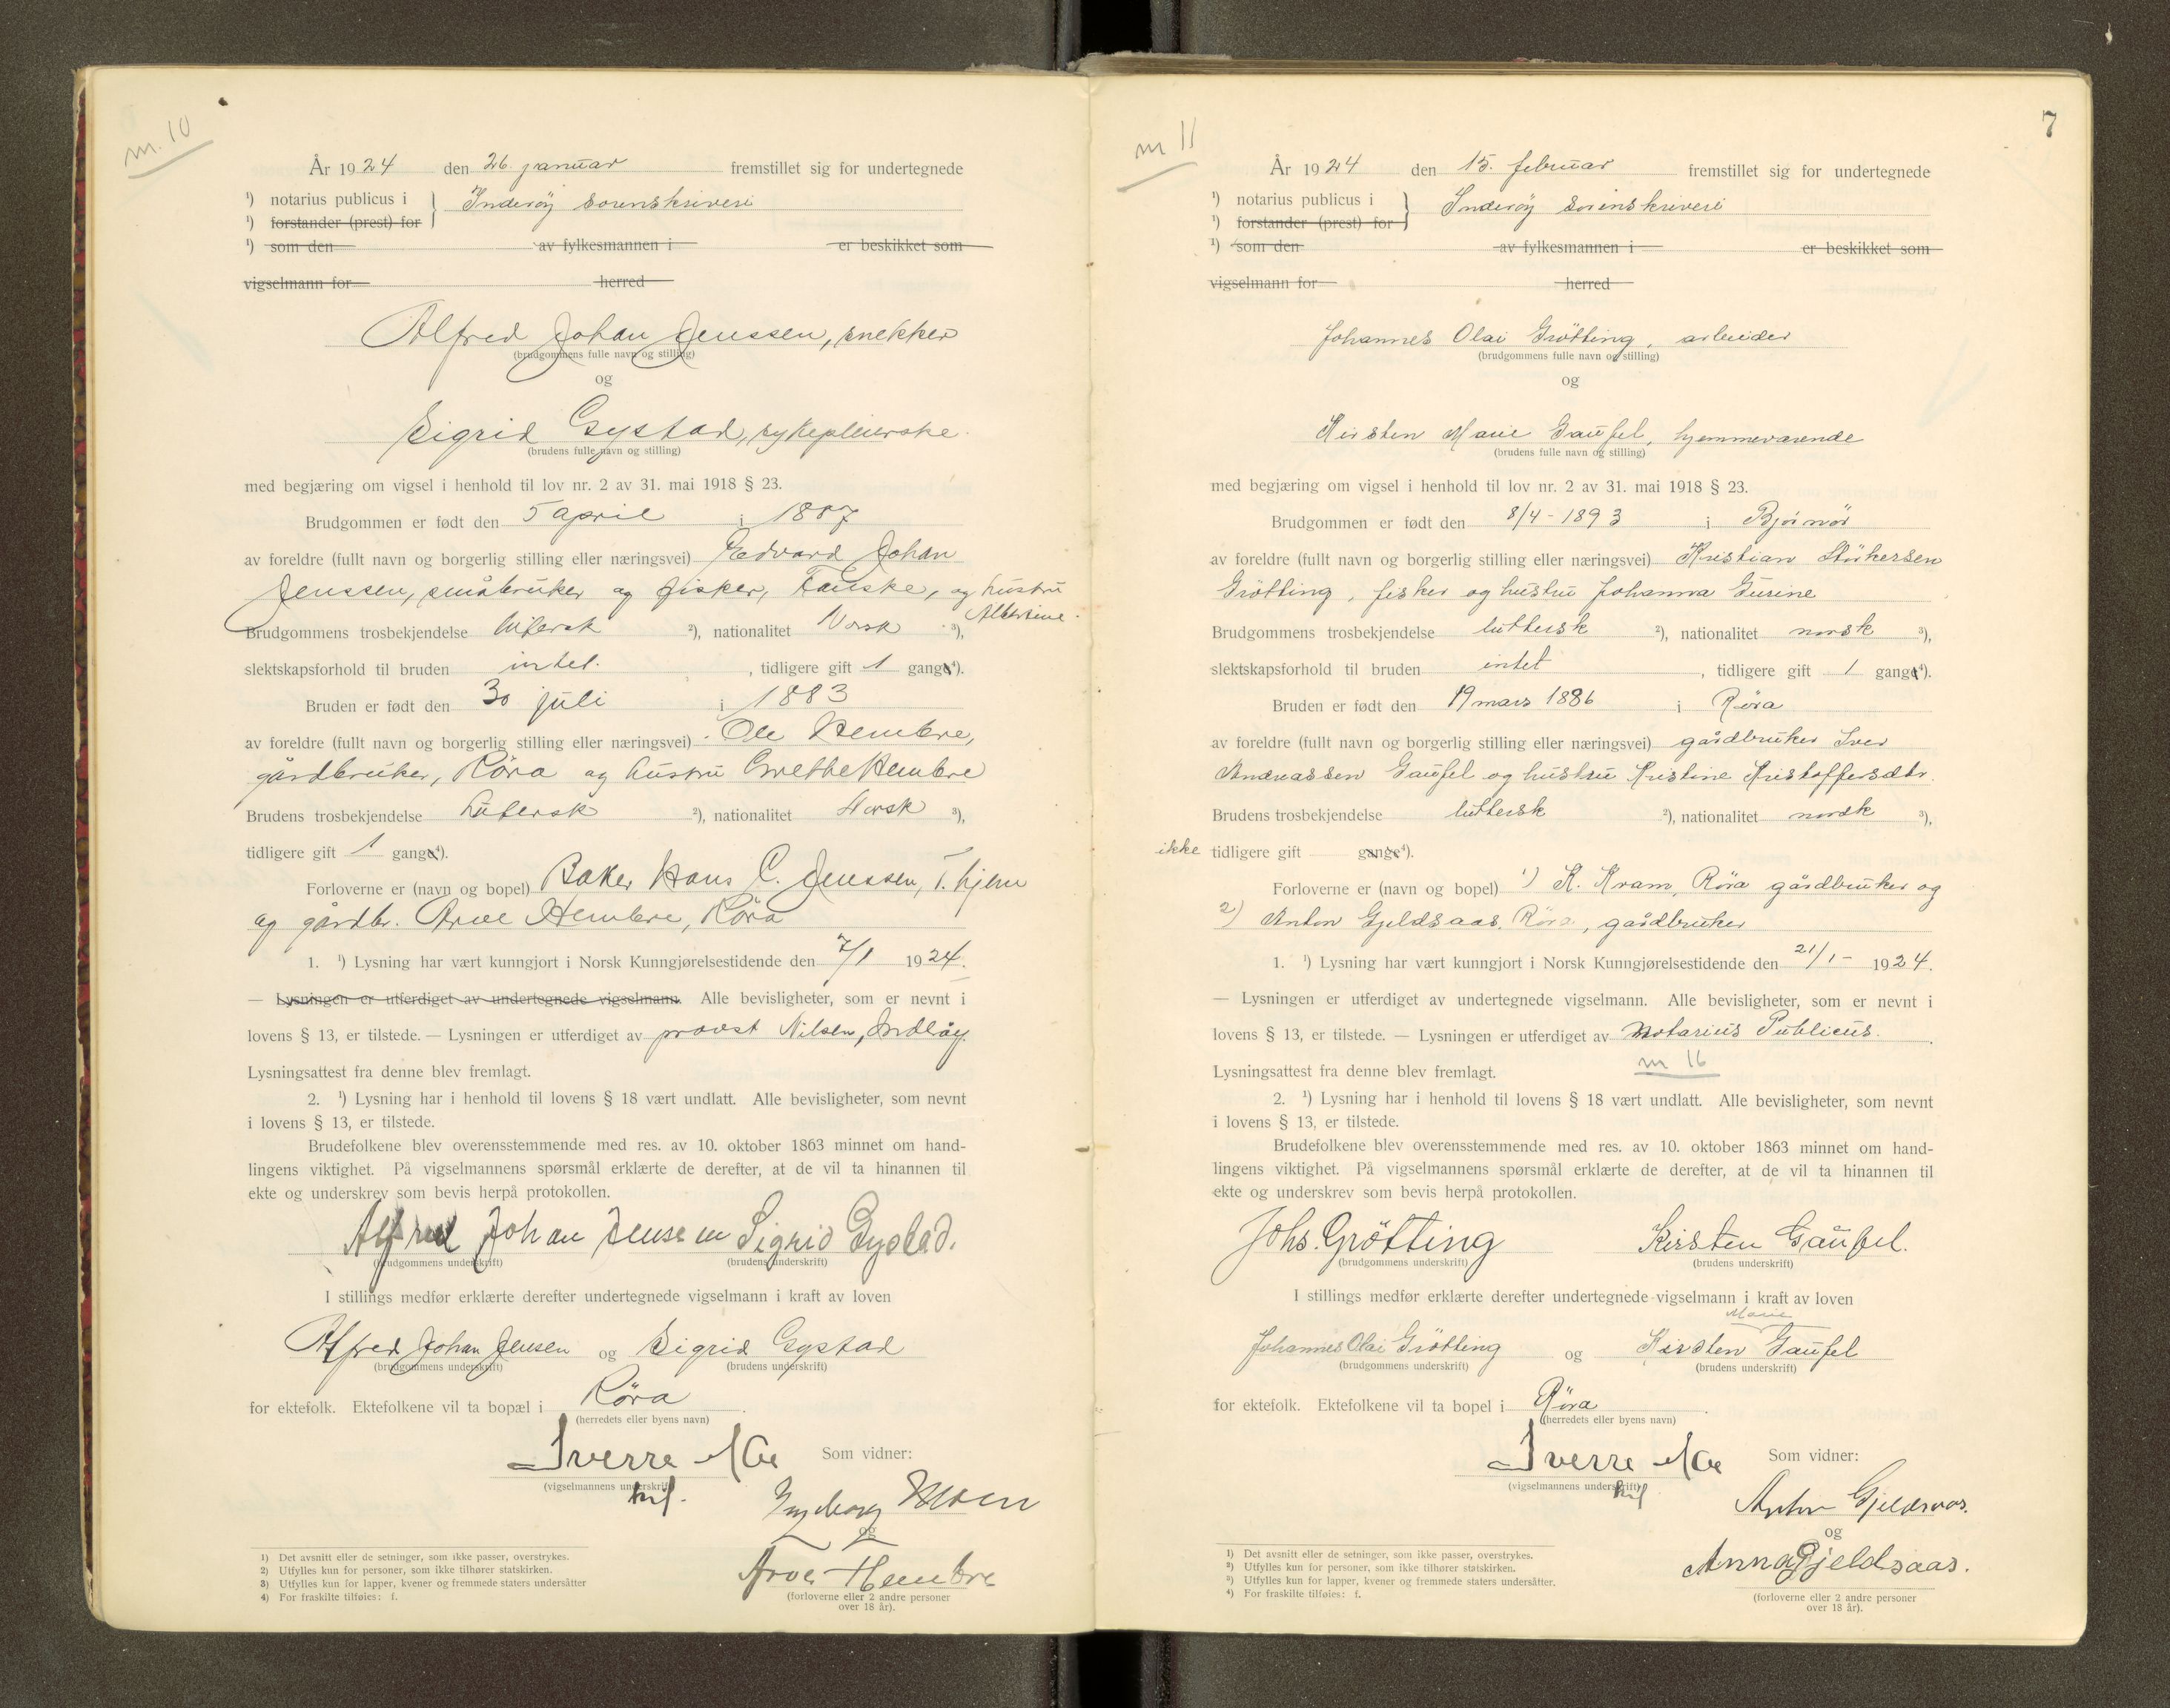 m. 10
År 1924 den 26. januar fremstillet sig for undertegnede
1) notarius publicus i } Inderöy sorenskriveri
1) forstander (prest) for
1) som den av fylkesmannen i er beskikket som
vigselmann for herred
Alfred Johan Jenssen, snekker
(brudgommens fulle navn og stilling)
og
Sigrid Gystad, sykepleierske.
(brudens fulle navn og stilling)
med begjæring om vigsel i henhold til lov nr. 2 av 31. mai 1918 § 23.
Brudgommen er født den 5 april i 1887
av foreldre (fullt navn og borgerlig stilling eller næringsvei) Edvard Johan
Jenssen, småbruker og fisker, Fauske, og hustru
Albertine.
Brudgommens trosbekjendelse lutersk 2), nationalitet Norsk 3),
slektskapsforhold til bruden intet. , tidligere gift 1 gang 4).
Bruden er født den 30 juli i 1883
av foreldre (fullt navn og borgerlig stilling eller næringsvei) Ole Hembre,
gårdbruker, Röra og hustru Grethe Hembre
Brudens trosbekjendelse Lutersk 2), nationalitet Norsk 3),
tidligere gift 1 gang 4).
Forloverne er (navn og bopel) Baker Hans C. Jenssen, T.hjem
og gårdbr. Arve Hembre, Röra
1. 1) Lysning har vært kunngjort i Norsk Kunngjørelsestidende den 7/1 1924.
— Lysningen er utferdiget av undertegnede vigselmann. Alle bevisligheter, som er nevnt i
lovens § 13, er tilstede. — Lysningen er utferdiget av provst Nilsen, Inderøy.
Lysningsattest fra denne blev fremlagt.
2. 1) Lysning har i henhold til lovens § 18 vært undlatt. Alle bevisligheter, som nevnt
i lovens § 13, er tilstede.
Brudefolkene blev overensstemmende med res. av 10. oktober 1863 minnet om hand-
lingens viktighet. På vigselmannens spørsmål erklærte de derefter, at de vil ta hinannen til
ekte og underskrev som bevis herpå protokollen.
Alfred Johan Jenssen Sigrid Gystad.
(brudgommens underskrift) (brudens underskrift)
I stillings medfør erklærte derefter undertegnede vigselmann i kraft av loven
Alfred Johan Jensen og Sigrid Gystad
(brudgommens underskrift) (brudens underskrift)
for ektefolk. Ektefolkene vil ta bopæl i Röra.
(herredets eller byens navn)
Sverre Moe Som vidner:
(vigselmannens underskrift)
Ingeborg Moen
og
Arve Hembre
(forloverne eller 2 andre personer
over 18 år).
1) Det avsnitt eller de setninger, som ikke passer, overstrykes.
2) Utfylles kun for personer, som ikke tilhører statskirken.
3) Utfylles kun for lapper, kvener og fremmede staters undersåtter
4) For fraskilte tilføies: f.
7
m 11
År 1924 den 15. februar fremstillet sig for undertegnede
1) notarius publicus i } Inderöy sorenskriveri
1) forstander (prest) for
1) som den av fylkesmannen i er beskikket som
vigselmann for herred
Johannes Olai Grötting, arbeider
(brudgommens fulle navn og stilling)
og
Kirsten Marie Gaufel, hjemmeværende
(brudens fulle navn og stilling)
med begjæring om vigsel i henhold til lov nr. 2 av 31. mai 1918 § 23.
Brudgommen er født den 8/4 - 1893 i Bjørnör
av foreldre (fullt navn og borgerlig stilling eller næringsvei) Kristian Störkersen
Grötting, fisker og hustru Johanna Gurine
Brudgommens trosbekjendelse luttersk 2), nationalitet norsk 3),
slektskapsforhold til bruden intet , tidligere gift 1 gang 4).
Bruden er født den 19 mars 1886 i Røra
av foreldre (fullt navn og borgerlig stilling eller næringsvei) gårdbruker Iver
Andreassen Gaufel og hustru Kristine Kristoffersdtr.
Brudens trosbekjendelse luttersk 2), nationalitet norsk 3),
ikke tidligere gift gange 4).
Forloverne er (navn og bopel) 1) K. Kram, Røra gårdbruker og
2) Anton Gjeldsaas, Röra, gårdbruker
1. 1) Lysning har vært kunngjort i Norsk Kunngjørelsestidende den 21/1 - 1924.
— Lysningen er utferdiget av undertegnede vigselmann. Alle bevisligheter, som er nevnt i
lovens § 13, er tilstede. — Lysningen er utferdiget av Notarius Publicus.
Lysningsattest fra denne blev fremlagt. m 16
2. 1) Lysning har i henhold til lovens § 18 vært undlatt. Alle bevisligheter, som nevnt
i lovens § 13, er tilstede.
Brudefolkene blev overensstemmende med res. av 10. oktober 1863 minnet om hand-
lingens viktighet. På vigselmannens spørsmål erklærte de derefter, at de vil ta hinannen til
ekte og underskrev som bevis herpå protokollen.
Johs. Grötting Kirsten Gaufel.
(brudgommens underskrift) (brudens underskrift)
I stillings medfør erklærte derefter undertegnede vigselmann i kraft av loven
Marie
Johannes Olai Grötting og Kirsten Gaufel
(brudgommens underskrift) (brudens underskrift)
for ektefolk. Ektefolkene vil ta bopel i Röra.
(herredets eller byens navn)
Sverre Moe Som vidner:
(vigselmannens underskrift)
Anton Gjeldsaas.
og
Anna Gjeldsaas.
(forloverne eller 2 andre personer
over 18 år).
1) Det avsnitt eller de setninger, som ikke passer, overstrykes.
2) Utfylles kun for personer, som ikke tilhører statskirken.
3) Utfylles kun for lapper, kvener og fremmede staters undersåtter.
4) For fraskilte tilføies: f.